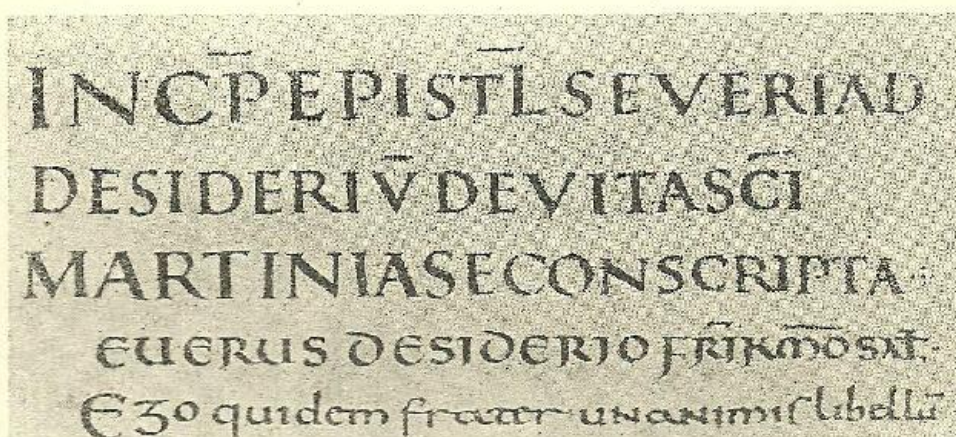 INCP̄ EPIST̄L SEVERI AD
DESIDERIV̄ DE VITA SC̄I
MARTINI A SE CONSCRIPTA·
EUERUS DESIDERIO FR̄I KM̄O SAL̄·
Ego quidem frater unanimis libellū